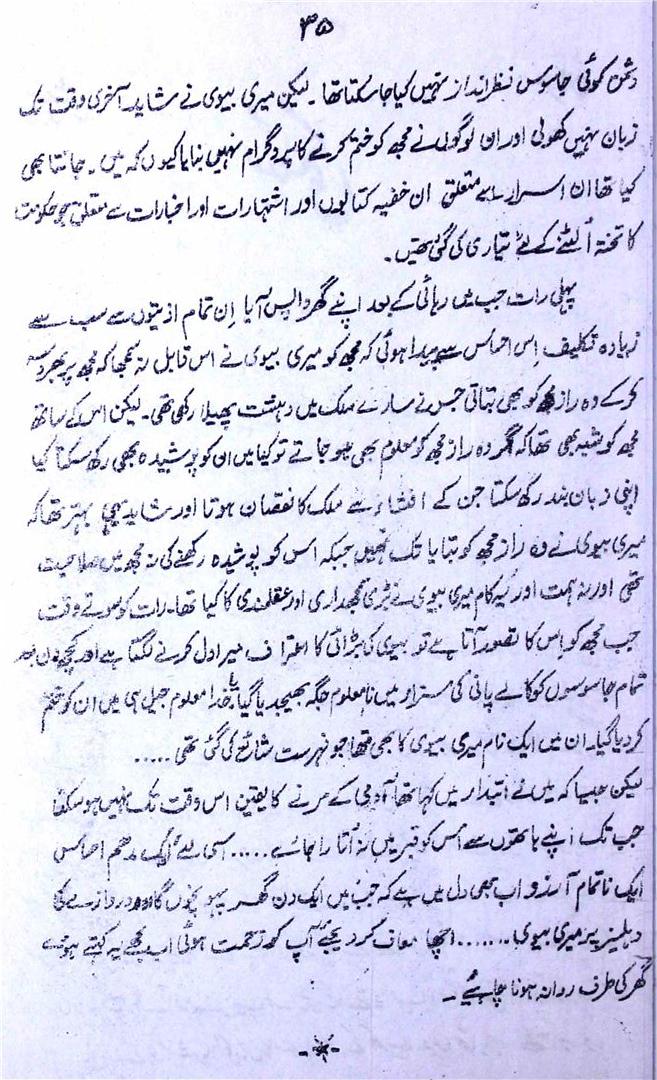 ۳۵
دشمن کوئی جاسوس نظر انداز نہیں کیا جا سکتا تھا۔ لیکن میری بیوی نے شاید آخری وقت تک
زبان نہیں کھولی اور ان لوگوں نے مجھ کو ختم کرنے کا پروگرام نہیں بنایا کیوں کہ میں۔ جانتا بھی
کیا تھا ان اسرار سے متعلق ان خفیہ کتابوں اور اشتہارات اور اخبارات سے متعلق جو حکومت
کا تختہ اُلٹنے کے لئے تیاری کی گئی تھیں۔
پہلی رات جب میں رہائی کے بعد اپنے گھر واپس آیا اِن تمام اذیتوں سے سب سے
زیادہ تکلیف اِس احساس سے پیدا ہوئی کہ مجھ کو میری بیوی نے اس قابل نہ سمجھا کہ مجھ پر بھروسہ
کر کے وہ راز مجھ کو بھی بتاتی جس نے سارے ملک میں دہشت پھیلا رکھی تھی۔ لیکن اس کے ساتھ
مجھ کو شبہ بھی تھا کہ اگر وہ راز مجھ کو معلوم بھی ہو جاتے تو کیا میں ان کو پوشیدہ بھی رکھ سکتا کیا
اپنی زبان بند رکھ سکتا جن کے افشاء سے ملک کا نقصان ہوتا اور شاید یہی بہتر تھا کہ
میری بیوی نے وہ راز مجھ کو بتایا تک نہیں جبکہ اس کو پوشیدہ رکھنے کی نہ مجھ میں صلاحیت
تھی اور نہ ہمت اور یہ کام میری بیوی نے بڑی سمجھداری اور عقلمندی کا کیا تھا۔ رات کو سوتے وقت
جب مجھ کو اِس کا تصور آتا ہے تو بیوی کی بڑائی کا اعتراف میرا دل کرنے لگتا ہے اور کچھ دن بعد
تمام جاسوسوں کو کالے پانی کی سزا میں نامعلوم جگہ بھیج دیا گیا یا خدا معلوم جیل ہی میں ان کو ختم
کر دیا گیا۔ ان میں ایک نام میری بیوی کا بھی تھا جو فہرست شائع کی گئی تھی .....
لیکن جیسا کہ میں نے ابتداء میں کہا تھا آدمی کے مرنے کا یقین اس وقت تک نہیں ہو سکتا
جب تک اپنے ہاتھوں سے اُس کو قبر میں نہ اُتارا جائے ..... اسی لئے ایک مدھم احساس
ایک ناتمام آرزو اب بھی دل میں ہے کہ جب میں ایک دن گھر پہونچوں گا وہ دروازے کی
دہلیز پر میری بیوی ....... اچھا معاف کر دیجئے آپ کو زحمت ہوئی اب مجھے یہ کہتے ہوئے
گھر کی طرف روانہ ہونا چاہئے۔